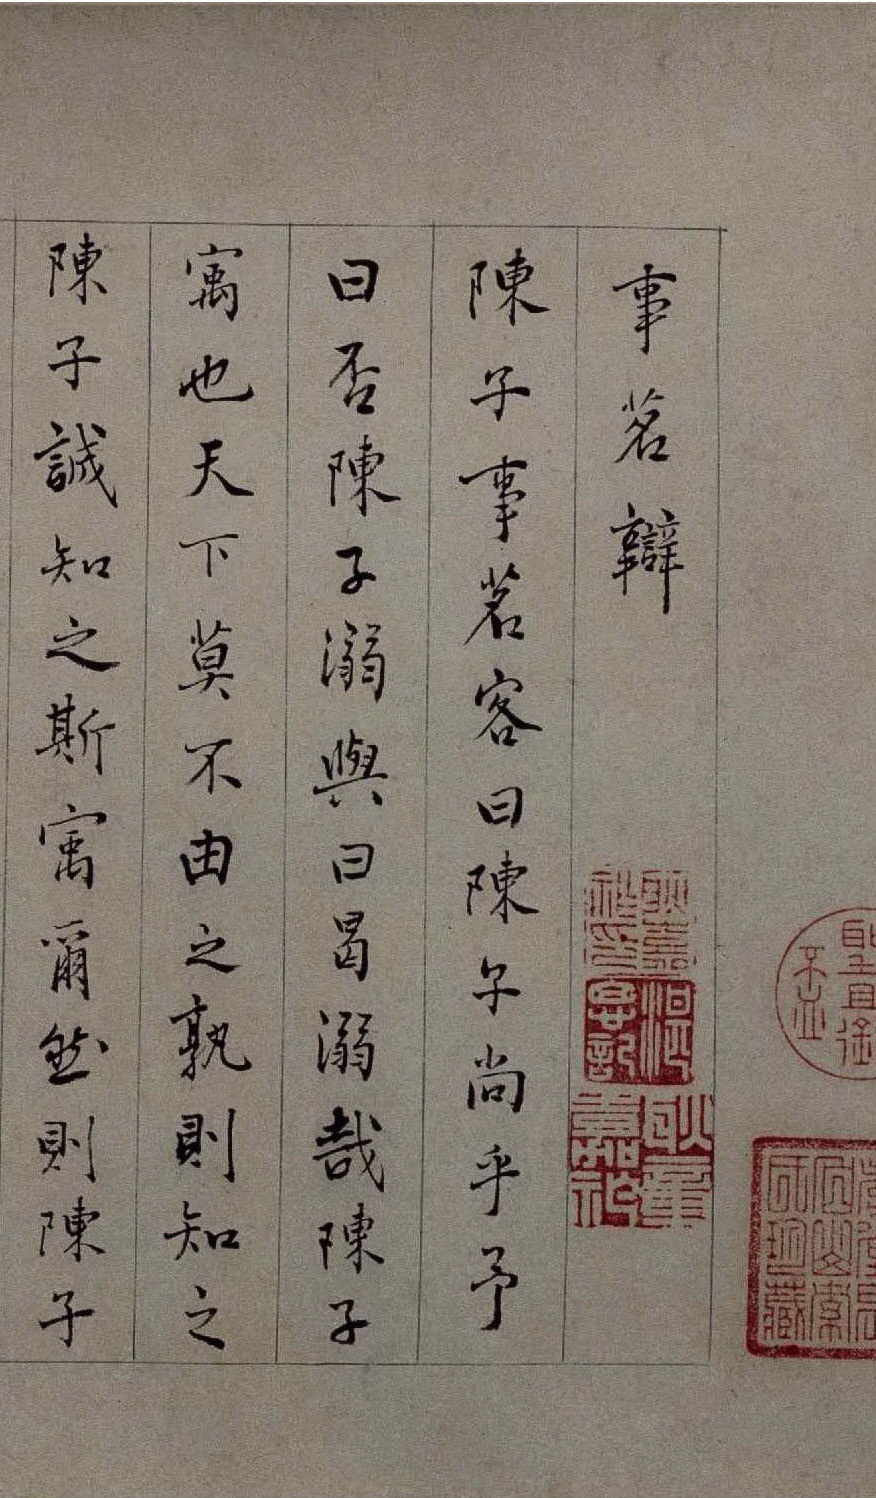 事茗辯
陳子事茗客曰陳子尚乎予
曰否陳子溺與曰曷溺哉陳子
寓也天下莫不由之孰則知之
陳子誠知之斯寓爾然則陳子
耿嘉祚印
耿嘉祚